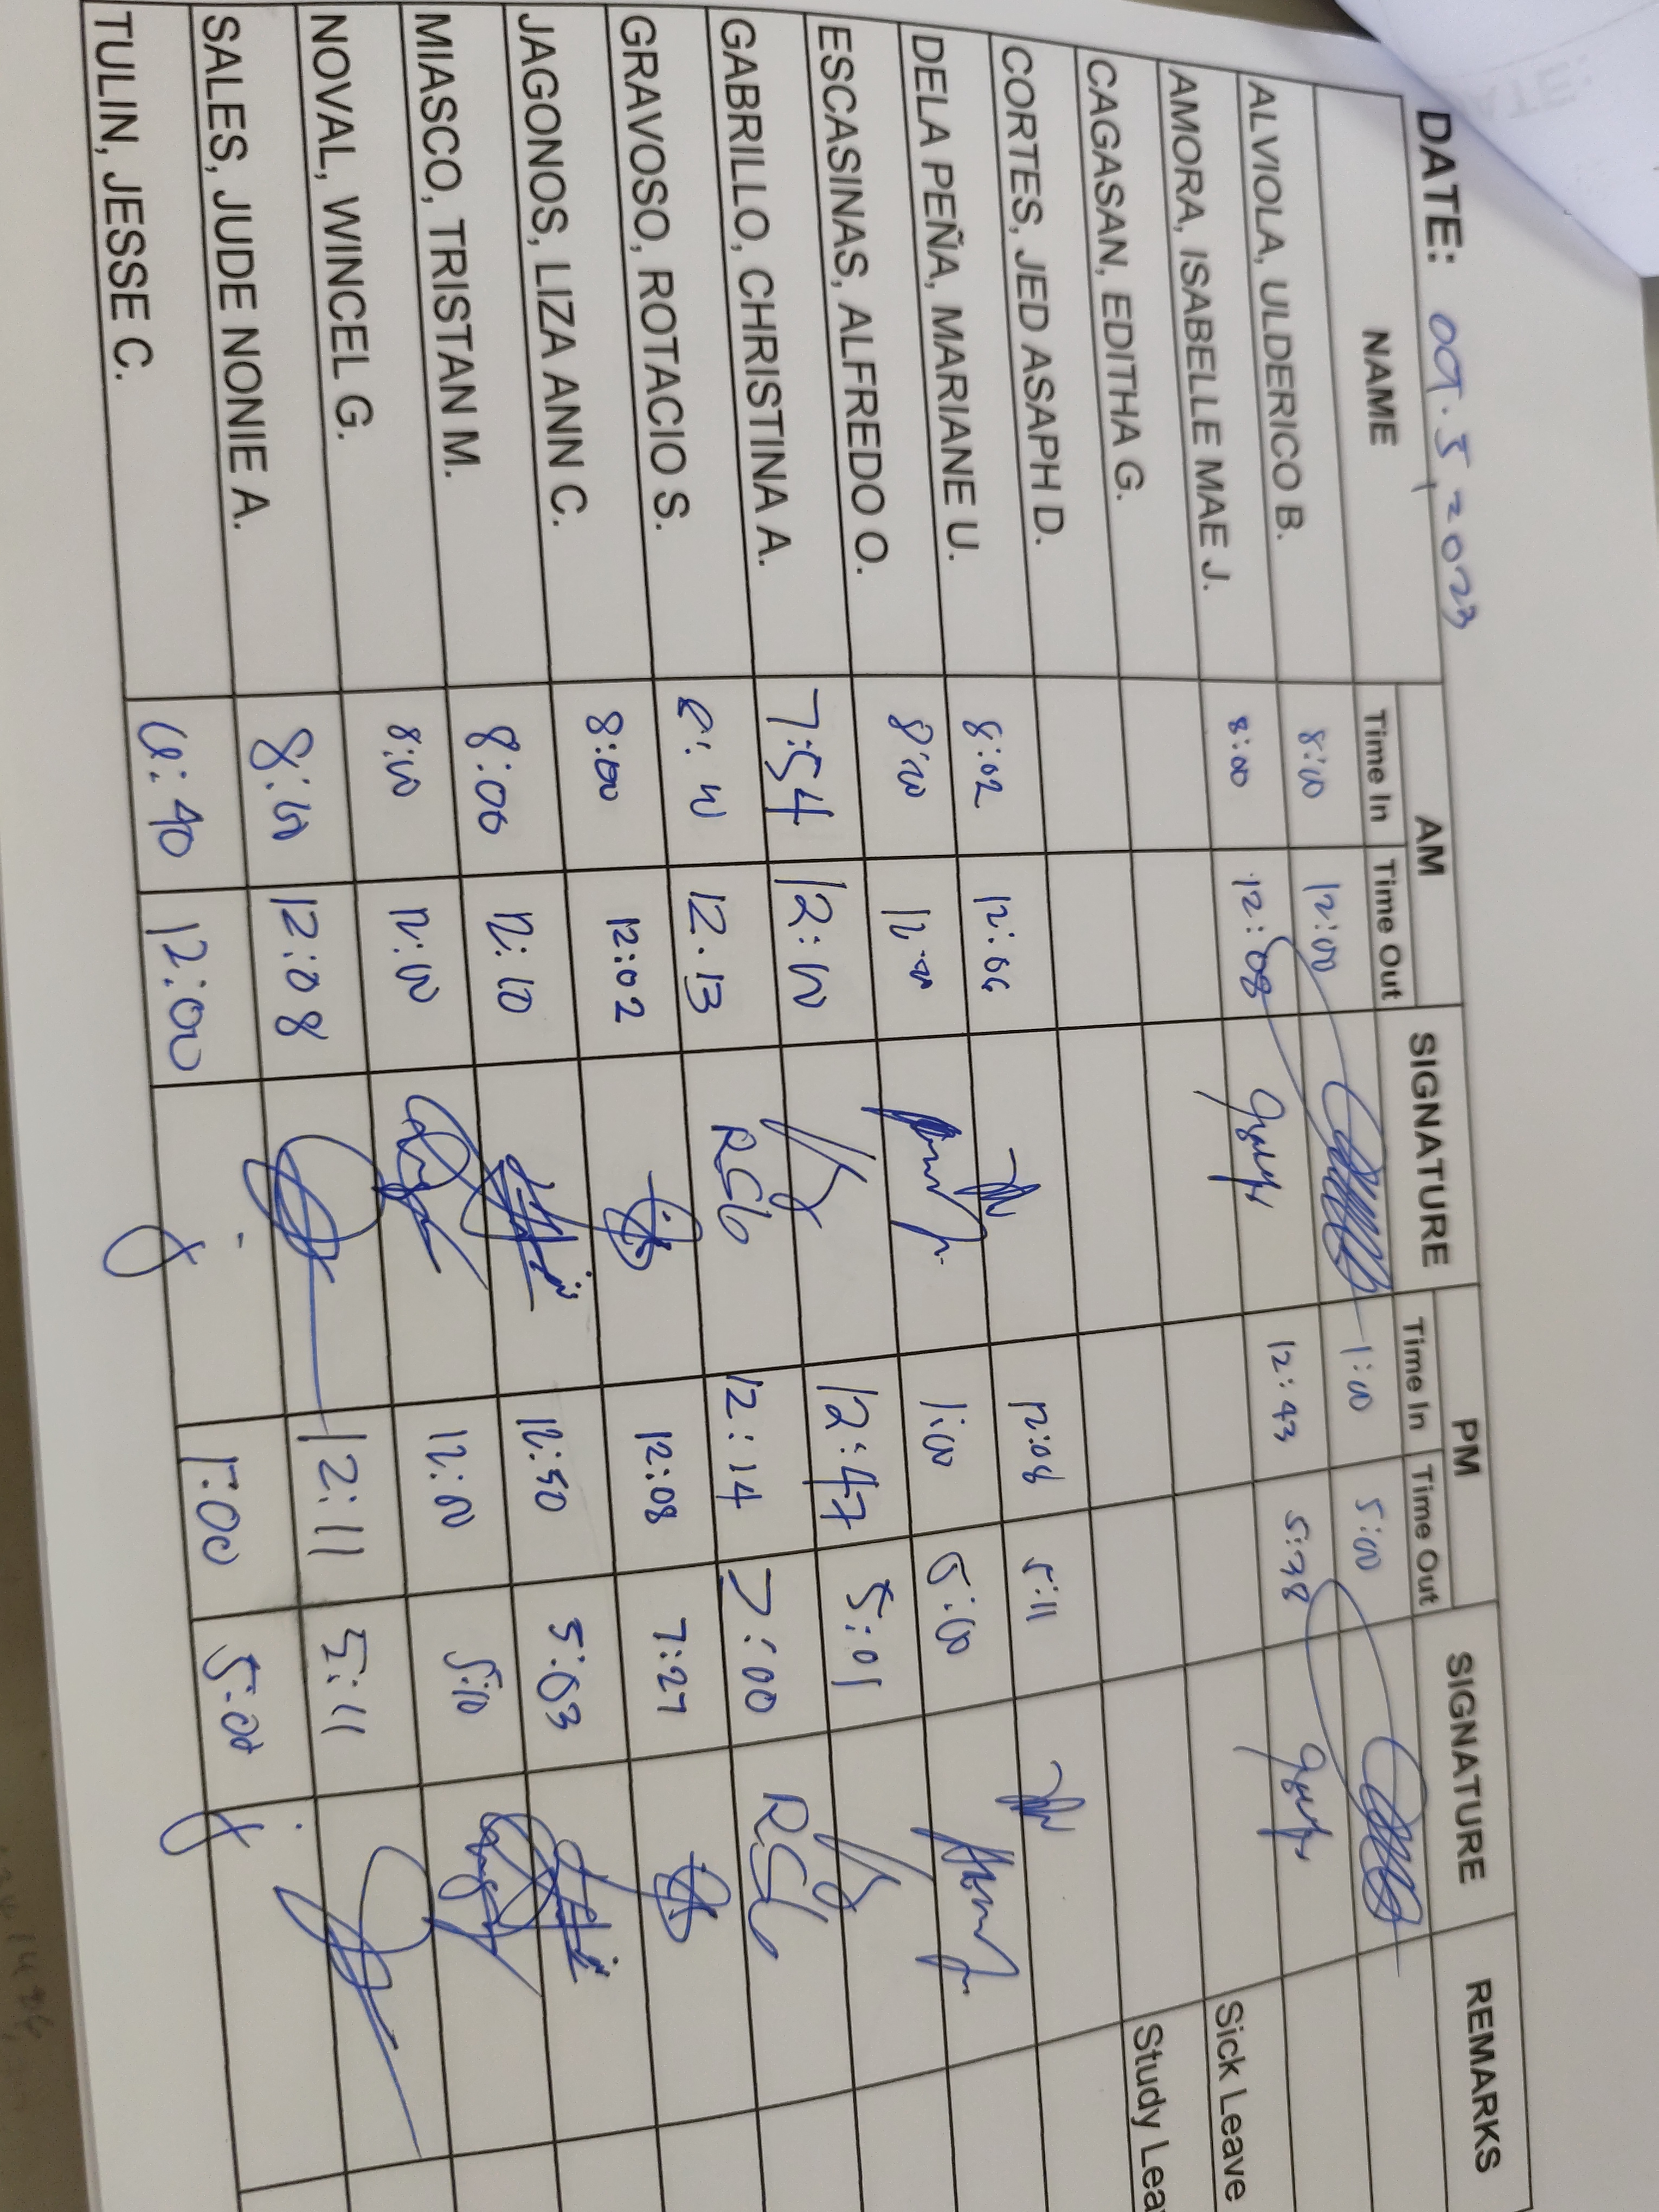 DATE: 09.5,2023
NAME AM SIGNATURE PM SIGNATURE REMARKS
Time In Time Out Time In Time Out
ALVIOLA, ULDERICO B. 8:00 12:00 1:00 5:00
AMORA, ISABELLE MAE J. 8:00 12:08 12:43 5:38
CAGASAN, EDITHA G. Sick Leave
CORTES, JED ASAPH D. Study Lea
DELA PEÑA, MARIANE U. 8:02 12:06 12:08 5:11
ESCASINAS, ALFREDO O. 8:00 12:00 1:00 5:00
GABRILLO, CHRISTINA A. 7:54 12:00 12:47 5:01
GRAVOSO, ROTACIO S. 8:00 12.13 RSG 12:14 7:00 RSG
JAGONOS, LIZA ANN C. 8:00 12:02 12:08 7:27
MIASCO, TRISTAN M. 8:00 12:10 12:50 5:03
NOVAL, WINCEL G. 8:00 12:00 12:00 5:10
SALES, JUDE NONIE A. 8:00 12:08 12:11 5:11
TULIN, JESSE C. 12:00 1:00 5:00